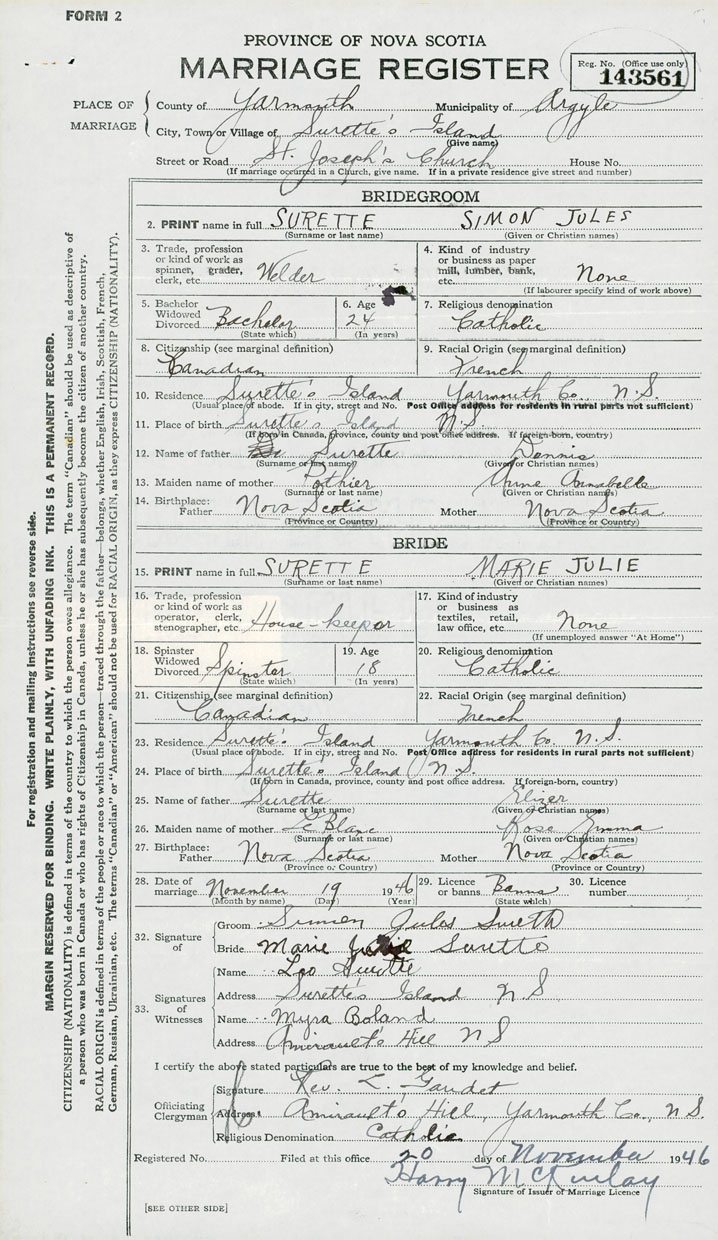 FORM 2
PROVINCE OF NOVA SCOTIA
MARRIAGE REGISTER
Reg. No. (Office use only)
143561
PLACE OF MARRIAGE
County of Yarmouth Municipality of Argyle
City, Town or Village of Surette's Island
(Give name)
Street or Road St. Joseph's Church House No.
(If marriage occurred in a Church, give name. If in a private residence give street and number)
BRIDEGROOM
2. PRINT name in full SURETTE SIMON JULES
(Surname or last name) (Given or Christian names)
3. Trade, profession or kind of work as spinner, grader, clerk, etc. Welder
4. Kind of industry or business as paper mill, lumber, bank, etc. None
(If labourer specify kind of work above)
5. Bachelor Widowed Divorced Bachelor
(State which)
6. Age 24
(In years)
7. Religious denomination
Catholic
8. Citizenship (see marginal definition)
Canadian
9. Racial Origin (see marginal definition)
French
10. Residence Surette's Island Yarmouth Co., N.S.
(Usual place of abode. If in city, street and No. Post Office address for residents in rural parts not sufficient)
11. Place of birth Surette's Island N.S.
(If born in Canada, province, county and post office address. If foreign-born, country)
12. Name of father Surette Dennis
(Surname or last name) (Given or Christian names)
13. Maiden name of mother Pothier Anne Annabelle
(Surname or last name) (Given or Christian names)
14. Birthplace: Father Nova Scotia Mother Nova Scotia
(Province or Country) (Province or Country)
BRIDE
15. PRINT name in full SURETTE MARIE JULIE
(Surname or last name) (Given or Christian names)
16. Trade, profession or kind of work as operator, clerk, stenographer, etc. House-keeper
17. Kind of industry or business as textiles, retail, law office, etc. None
(If unemployed answer "At Home")
18. Spinster Widowed Divorced Spinster
(State which)
19. Age 18
(In years)
20. Religious denomination
Catholic
21. Citizenship (see marginal definition)
Canadian
22. Racial Origin (see marginal definition)
French
23. Residence Surette's Island Yarmouth Co. N.S.
(Usual place of abode. If in city, street and No. Post Office address for residents in rural parts not sufficient)
24. Place of birth Surette's Island N.S.
(If born in Canada, province, county and post office address. If foreign-born, country)
25. Name of father Surette Elizer
(Surname or last name) (Given or Christian names)
26. Maiden name of mother LeBlanc Rose Emma
(Surname or last name) (Given or Christian names)
27. Birthplace: Father Nova Scotia Mother Nova Scotia
(Province or Country) (Province or Country)
28. Date of marriage November 19 1946
(Month by name) (Day) (Year)
29. Licence or banns Banns
(State which)
30. Licence number
32. Signature of
Groom Simon Jules Surette
Bride Marie Julie Surette
33. Signatures of Witnesses
Name Leo Surette
Address Surette's Island N S
Name Myra Boland
Address Amirault's Hill N S
I certify the above stated particulars are true to the best of my knowledge and belief.
Officiating Clergyman
Signature Rev. L. Gaudet
Address Amirault's Hill, Yarmouth Co., N.S.
Religious Denomination Catholic
Registered No. Filed at this office 20 day of November 1946
Harry McKinlay
Signature of Issuer of Marriage Licence
[SEE OTHER SIDE]
For registration and mailing instructions see reverse side.
MARGIN RESERVED FOR BINDING. WRITE PLAINLY, WITH UNFADING INK. THIS IS A PERMANENT RECORD.
CITIZENSHIP (NATIONALITY) is defined in terms of the country to which the person owes allegiance. The term "Canadian" should be used as descriptive of
a person who was born in Canada or who has rights of Citizenship in Canada, unless he or she has subsequently become the citizen of another country.
RACIAL ORIGIN is defined in terms of the people or race to which the person—traced through the father—belongs, whether English, Irish, Scottish, French,
German, Russian, Ukrainian, etc. The terms "Canadian" or "American" should not be used for RACIAL ORIGIN, as they express CITIZENSHIP (NATIONALITY).